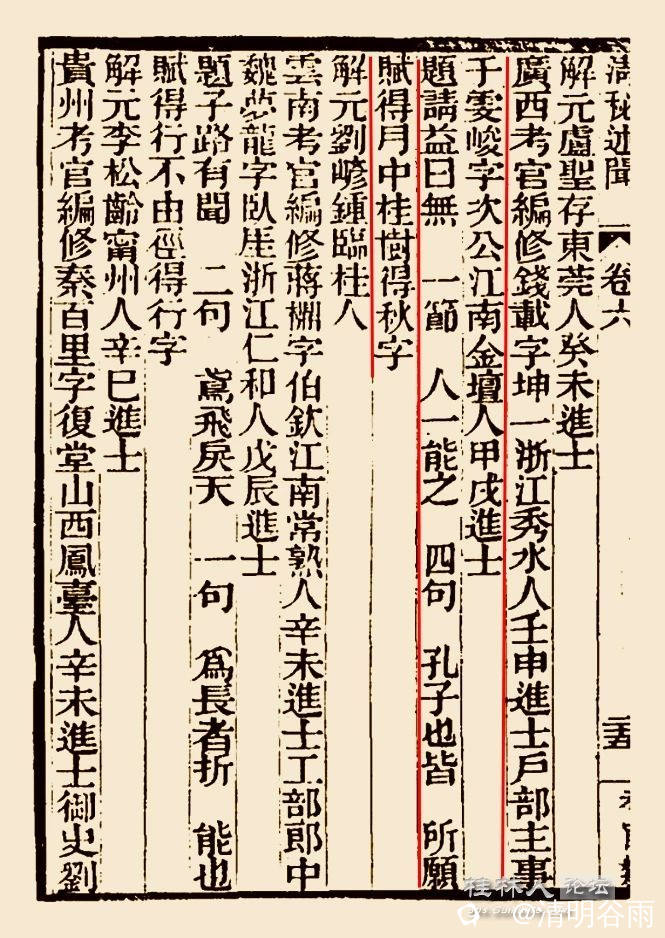 清秘述聞 卷六 二五
解元盧聖存東莞人癸未進士
廣西考官編修錢載字坤一浙江秀水人壬申進士戶部主事
于雯峻字次公江南金壇人甲戌進士
題請益曰無 一節 人一能之 四句 孔子也皆 所願
賦得月中桂樹得秋字
解元劉鍾臨桂人
雲南考官編修蔣棡字伯欽江南常熟人辛未進士工部郎中
魏夢龍字臥崖浙江仁和人戊辰進士
題子路有聞 二句 鳶飛戾天 一句 爲長者折 能也
賦得行不由徑得行字
解元李松齡甯州人辛巳進士
貴州考官編修秦百里字復堂山西鳳臺人辛未進士御史劉
桂林人论坛
@清明谷雨